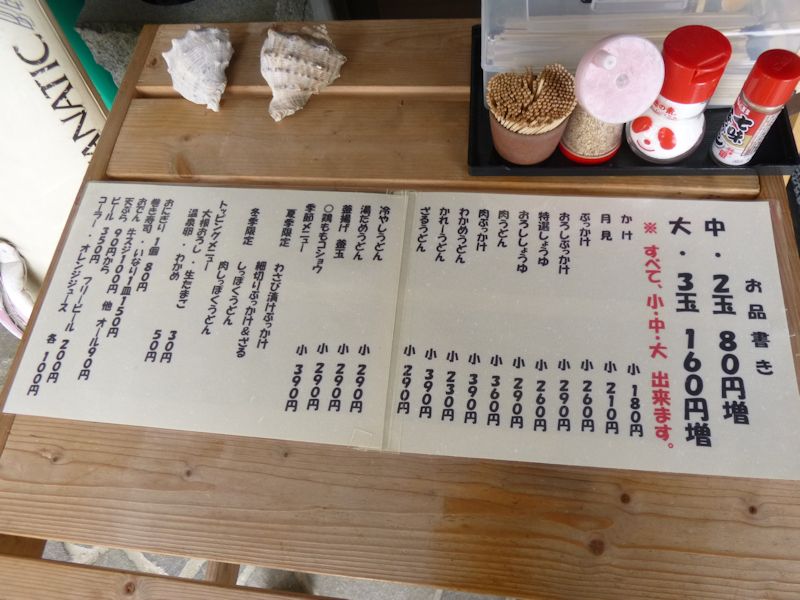 お品書き
中・2玉 80円増
大・3玉 160円増
※ すべて、小・中・大 出来ます。
かけ 小 180円
月見 小 210円
ぶっかけ 小 260円
おろしぶっかけ 小 290円
特選しょうゆ 小 260円
おろししょうゆ 小 290円
肉うどん 小 360円
肉ぶっかけ 小 390円
わかめうどん 小 230円
かれーうどん 小 390円
ざるうどん 小 290円
冷やしうどん 小 290円
湯だめうどん 小 290円
釜揚げ 釜玉 小 290円
○鶏ももコショウ 小 390円
季節メニュー
夏季限定 わさび漬けぶっかけ
細切りぶっかけ&ざる
冬季限定 しっぽくうどん
肉しっぽくうどん
トッピングメニュー
大根おろし・生たまご 30円
温泉卵 わかめ 50円
おにぎり 1個 80円
巻き寿司・いなり1皿150円
おでん 牛スジ100円 他 オール90円
天ぷら 90円から
ビール 350円 フリービール 200円
コーラー・ オレンジジュース 各 100円
七味
ANATIC